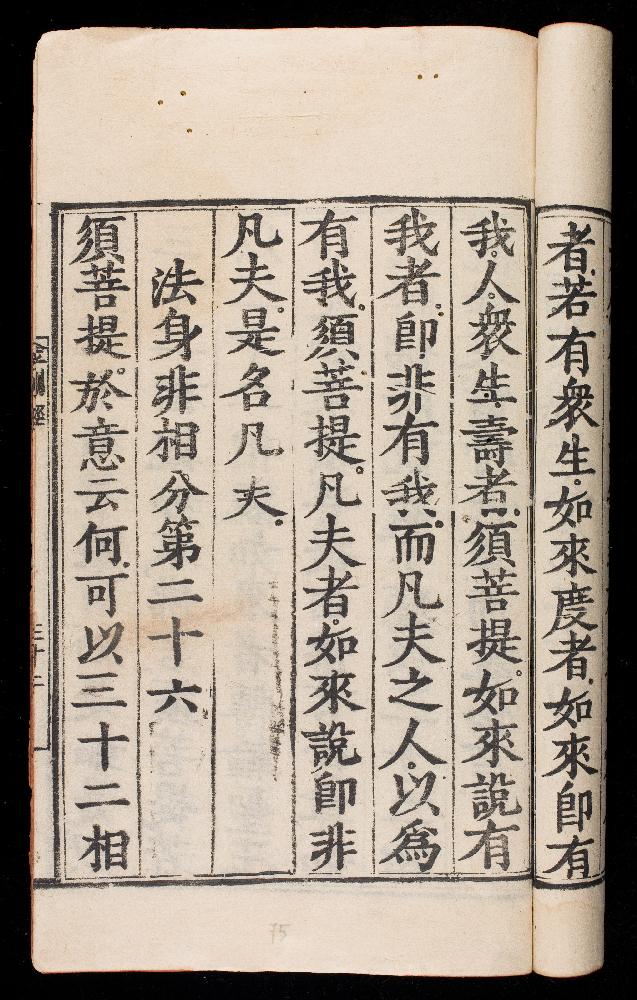 者.若有衆生.如來度者.如來卽有
我.人.衆生.壽者.須菩提.如來說有
我者.卽非有我.而凡夫之人.以爲
有我.須菩提.凡夫者.如來說卽非
凡夫.是名凡夫.
法身非相分第二十六
須菩提.於意云何.可以三十二相
金剛經
三十二
75